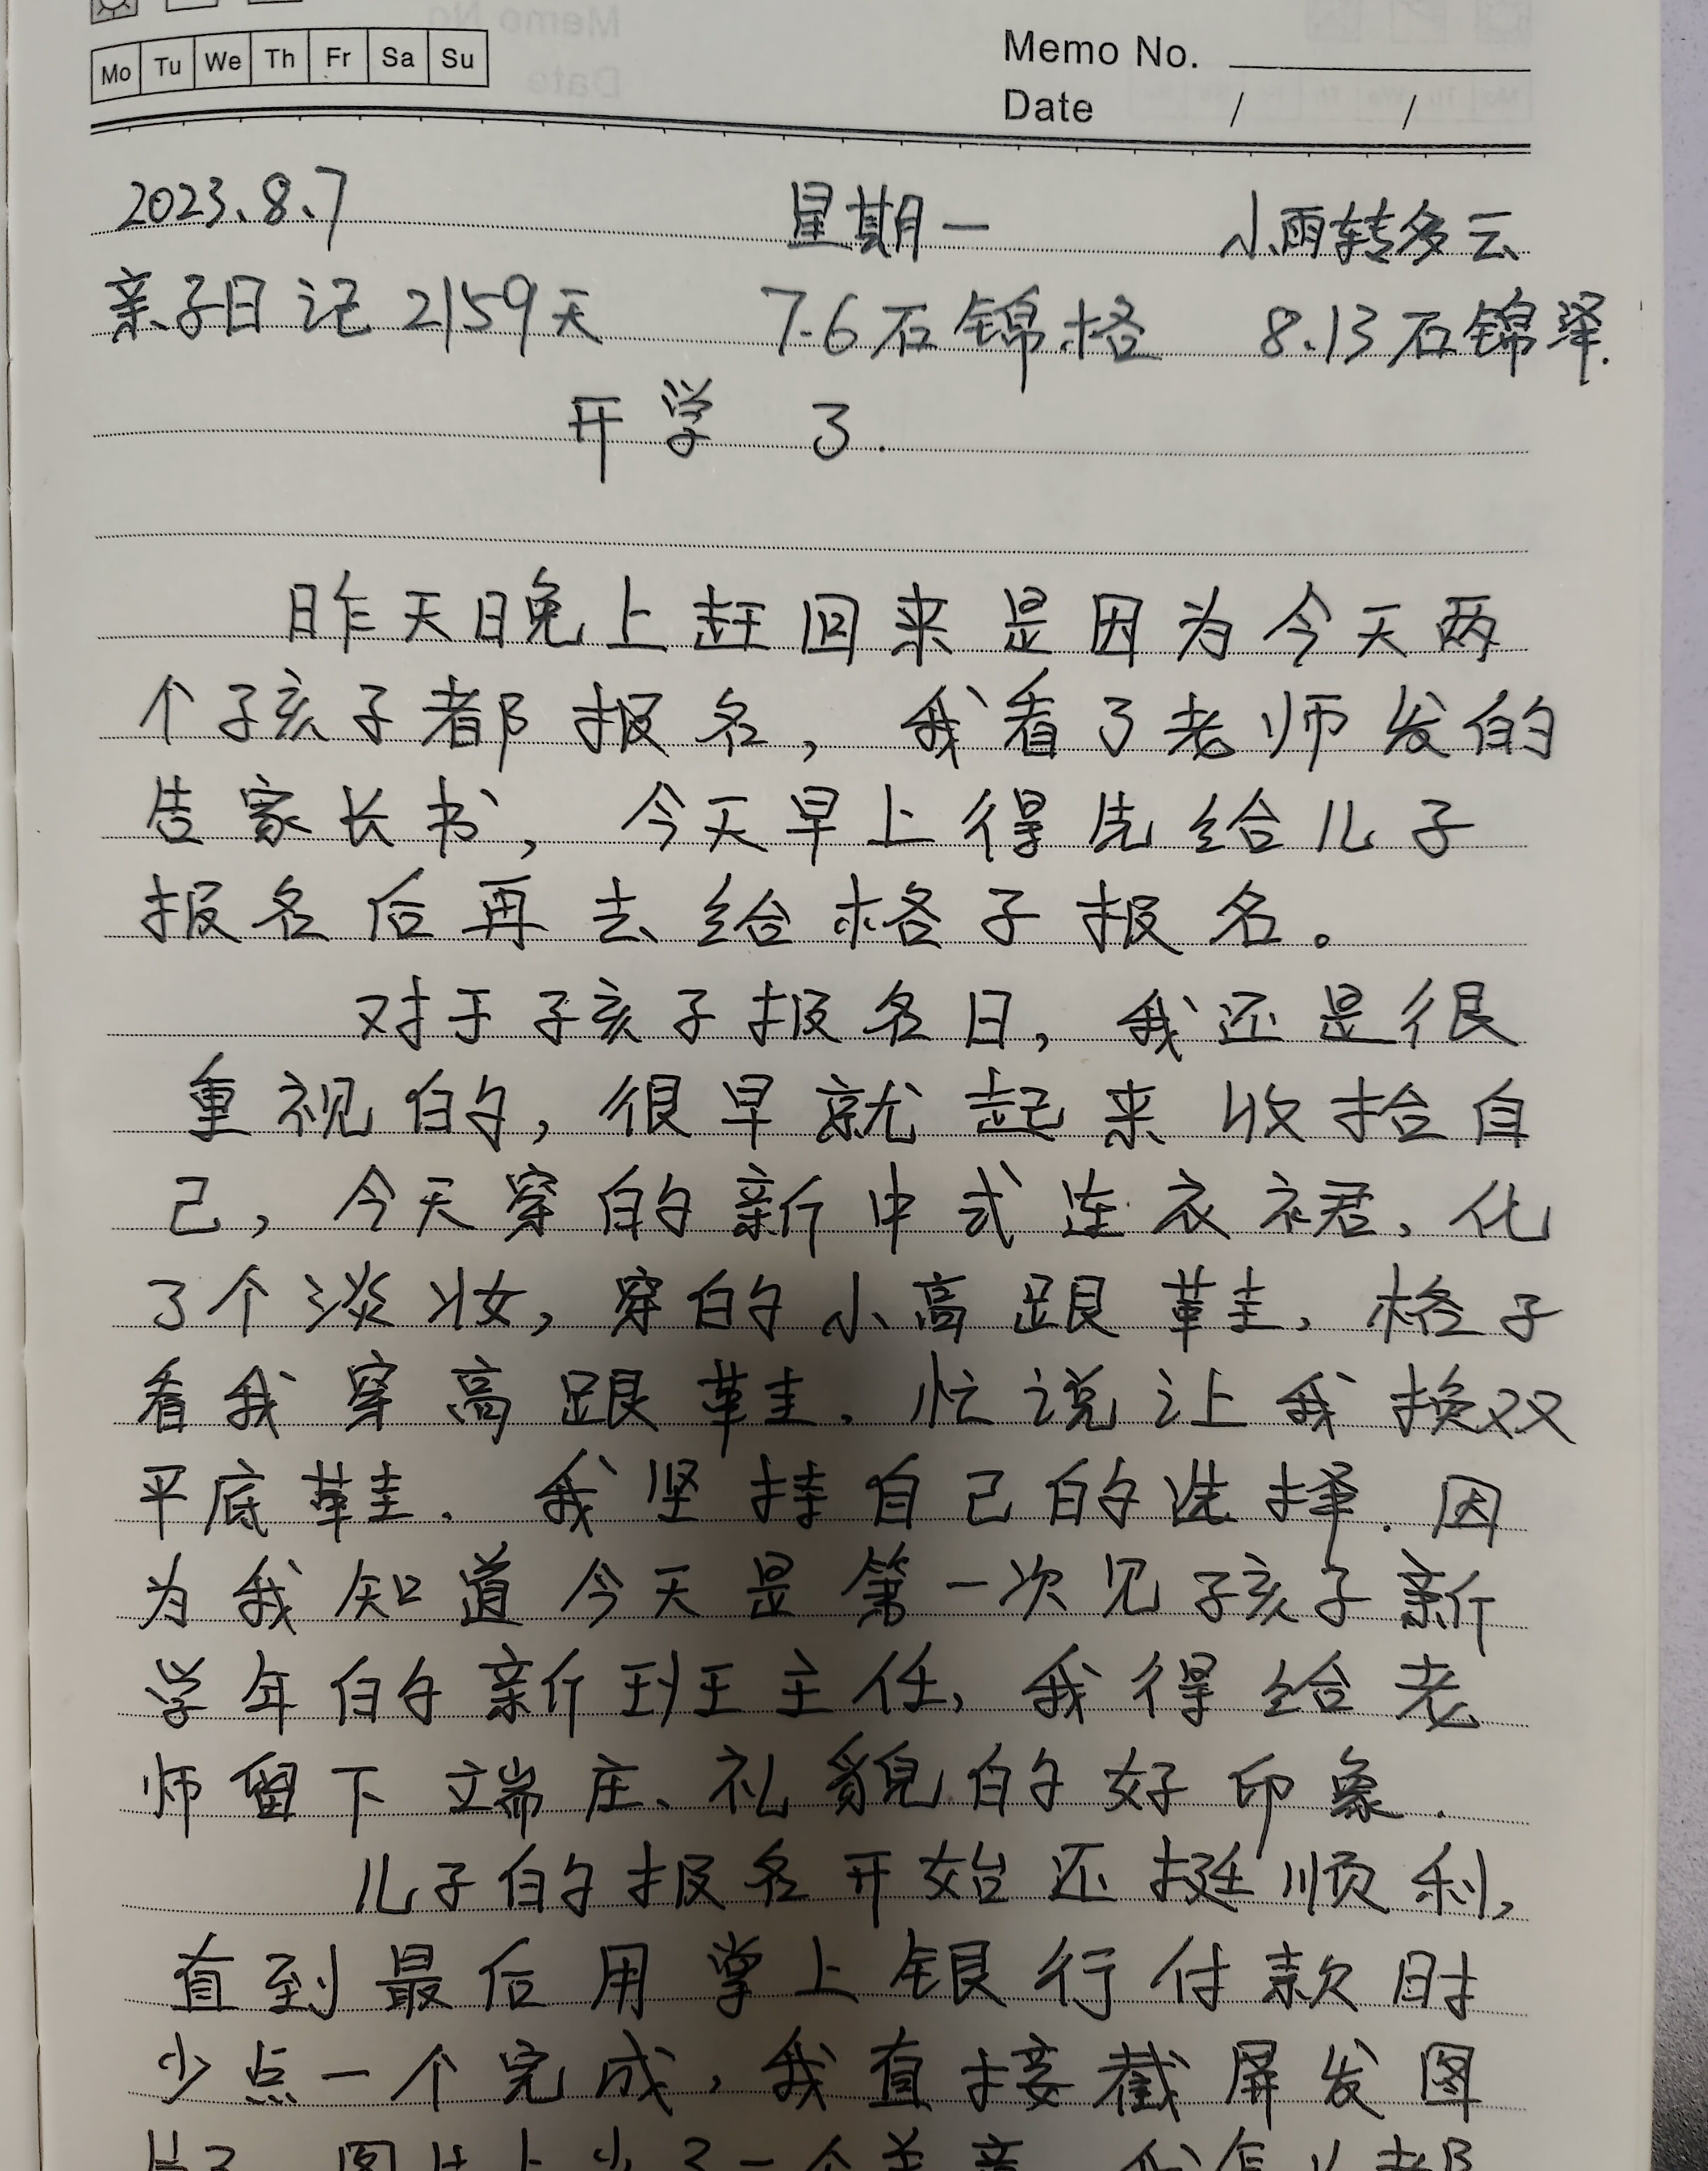 Mo Tu We Th Fr Sa Su
Memo No.
Date / /
2023.8.7 星期一 小雨转多云
亲子日记2159天 7.6石锦格 8.13石锦泽.
开学了.
昨天晚上赶回来是因为今天两
个孩子都报名，我看了老师发的
告家长书，今天早上得先给儿子
报名后再去给格子报名。
对于孩子报名日，我还是很
重视的，很早就起来收拾自
己，今天穿的新中式连衣裙、化
了个淡妆，穿的小高跟鞋，格子
看我穿高跟鞋.忙说让我换双
平底鞋.我坚持自己的选择.因
为我知道今天是第一次见孩子新
学年的新班主任，我得给老
师留下端庄、礼貌的好印象.
儿子的报名开始还挺顺利，
直到最后用掌上银行付款时
少点一个完成，我直接截屏发图
片了，图片上少了一个